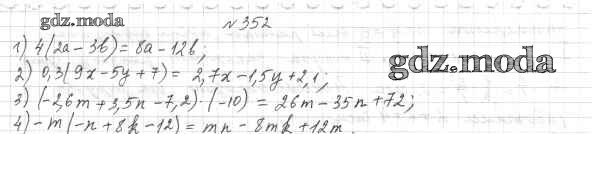 gdz.moda
№352
1) 4(2a - 3b) = 8a - 12b;
2) 0,3(9x - 5y + 7) = 2,7x - 1,5y + 2,1;
gdz.moda
3) (-2,6m + 3,5n - 7,2)·(-10) = 26m - 35n + 72;
4) - m(-n + 8k - 12) = mn - 8mk + 12m.